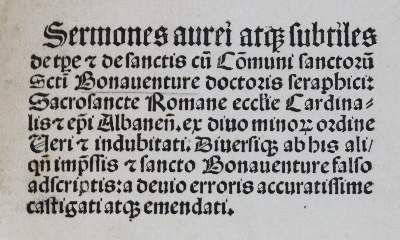 Sermones aurei atqꝫ subtiles
de tꝑe ⁊ de sanctis cũ Cõmuni sanctorũ
Sctĩ Bonauenture doctoris seraphici:
Sacrosancte Romane eccĺie Cardina-
lis ⁊ ep̃i Albaneñ. ex diuo minoꝝ ordine
Ueri ⁊ indubitati. Diuersiqꝫ ab his ali/
qñ imp̃ssis ⁊ sancto Bonauenture falso
adscriptis: a deuio erroris accuratissime
castigati atqꝫ emendati.